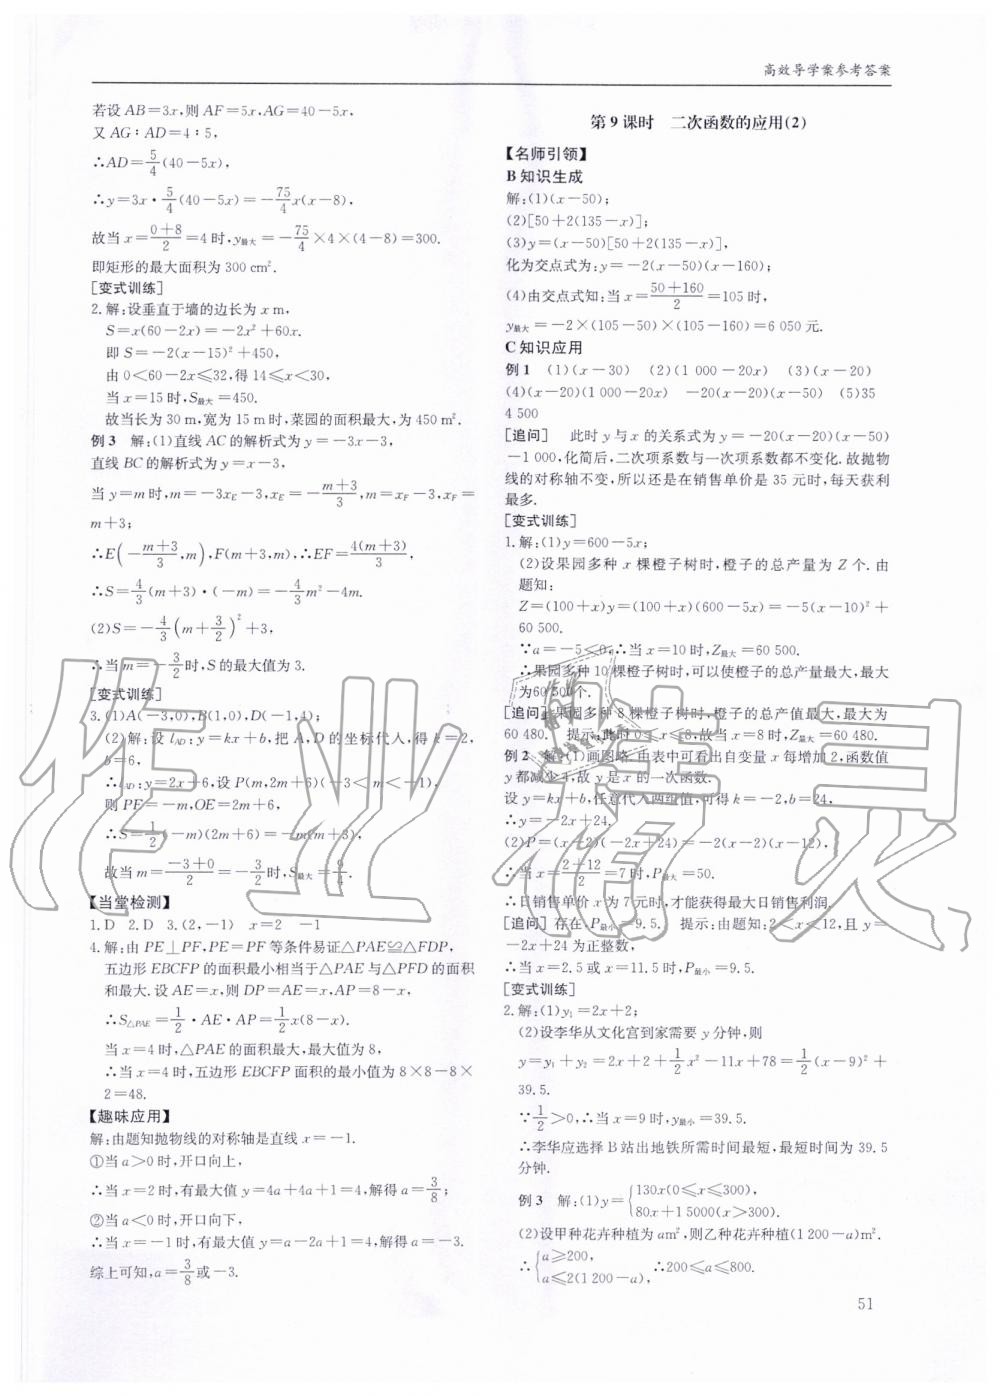 高效导学案参考答案
若设AB=3x,则AF=5x,AG=40-5x,
又AG∶AD=4∶5,
∴AD=5/4(40-5x),
∴y=3x·5/4(40-5x)=-75/4x(x-8),
故当x=(0+8)/2=4时,y最大=-75/4×4×(4-8)=300.
即矩形的最大面积为300 cm².
[变式训练]
2.解:设垂直于墙的边长为x m,
S=x(60-2x)=-2x²+60x.
即S=-2(x-15)²+450,
由0<60-2x≤32,得14≤x<30,
当x=15时,S最大=450.
故当长为30 m,宽为15 m时,菜园的面积最大,为450 m².
例3 解:(1)直线AC的解析式为y=-3x-3,
直线BC的解析式为y=x-3,
当y=m时,m=-3xE-3,xE=-(m+3)/3,m=xF-3,xF=
m+3;
∴E(-(m+3)/3,m),F(m+3,m),∴EF=4(m+3)/3,
∴S=4/3(m+3)·(-m)=-4/3m²-4m.
(2)S=-4/3(m+3/2)²+3,
∴当m=-3/2时,S的最大值为3.
[变式训练]
3.(1)A(-3,0),B(1,0),D(-1,4);
(2)解:设lAD:y=kx+b,把A,D的坐标代入,得k=2,
b=6,
∴lAD:y=2x+6,设P(m,2m+6)(-3<m<-1),
则PE=-m,OE=2m+6,
∴S=1/2(-m)(2m+6)=-m(m+3),
故当m=(-3+0)/2=-3/2时,S最大=9/4.
【当堂检测】
1.D 2.D 3.(2,-1) x=2 -1
4.解:由PE⊥PF,PE=PF等条件易证△PAE≌△FDP,
五边形EBCFP的面积最小相当于△PAE与△PFD的面积
和最大.设AE=x,则DP=AE=x,AP=8-x,
∴S△PAE=1/2·AE·AP=1/2x(8-x).
当x=4时,△PAE的面积最大,最大值为8,
∴当x=4时,五边形EBCFP面积的最小值为8×8-8×
2=48.
【趣味应用】
解:由题知抛物线的对称轴是直线x=-1.
①当a>0时,开口向上,
∴当x=2时,有最大值y=4a+4a+1=4,解得a=3/8;
②当a<0时,开口向下,
∴当x=-1时,有最大值y=a-2a+1=4,解得a=-3.
综上可知,a=3/8或-3.
第9课时 二次函数的应用(2)
【名师引领】
B 知识生成
解:(1)(x-50);
(2)[50+2(135-x)];
(3)y=(x-50)[50+2(135-x)],
化为交点式为:y=-2(x-50)(x-160);
(4)由交点式知:当x=(50+160)/2=105时,
y最大=-2×(105-50)×(105-160)=6 050元.
C 知识应用
例1 (1)(x-30) (2)(1 000-20x) (3)(x-20)
(4)(x-20)(1 000-20x) -20(x-20)(x-50) (5)35
4 500
[追问] 此时y与x的关系式为y=-20(x-20)(x-50)
-1 000,化简后,二次项系数与一次项系数都不变化.故抛物
线的对称轴不变,所以还是在销售单价是35元时,每天获利
最多.
[变式训练]
1.解:(1)y=600-5x;
(2)设果园多种x棵橙子树时,橙子的总产量为Z个.由
题知:
Z=(100+x)y=(100+x)(600-5x)=-5(x-10)²+
60 500.
∵a=-5<0,∴当x=10时,Z最大=60 500.
∴果园多种10棵橙子树时,可以使橙子的总产量最大,最大
为60 500个.
[追问] 果园多种8棵橙子树时,橙子的总产值最大,最大为
60 480. 提示:此时0≤x≤8,故当x=8时,Z最大=60 480.
例2 解:(1)画图略.由表中可看出自变量x每增加2,函数值
y都减少4,故y是x的一次函数.
设y=kx+b,任意代入两组值,可得k=-2,b=24,
∴y=-2x+24.
(2)P=(x-2)(-2x+24)=-2(x-2)(x-12),
∴当x=(2+12)/2=7时,P最大=50.
∴日销售单价x为7元时,才能获得最大日销售利润.
[追问] 存在,P最小=9.5. 提示:由题知:2<x<12,且y=
-2x+24为正整数,
∴当x=2.5或x=11.5时,P最小=9.5.
[变式训练]
2.解:(1)y₁=2x+2;
(2)设李华从文化宫到家需要y分钟,则
y=y₁+y₂=2x+2+1/2x²-11x+78=1/2(x-9)²+
39.5.
∵1/2>0,∴当x=9时,y最小=39.5.
∴李华应选择B站出地铁所需时间最短,最短时间为39.5
分钟.
例3 解:(1)y={130x(0≤x≤300),
80x+15000(x>300).
(2)设甲种花卉种植为am²,则乙种花卉种植(1 200-a)m².
∴{a≥200,
a≤2(1 200-a), ∴200≤a≤800.
51
作业精灵